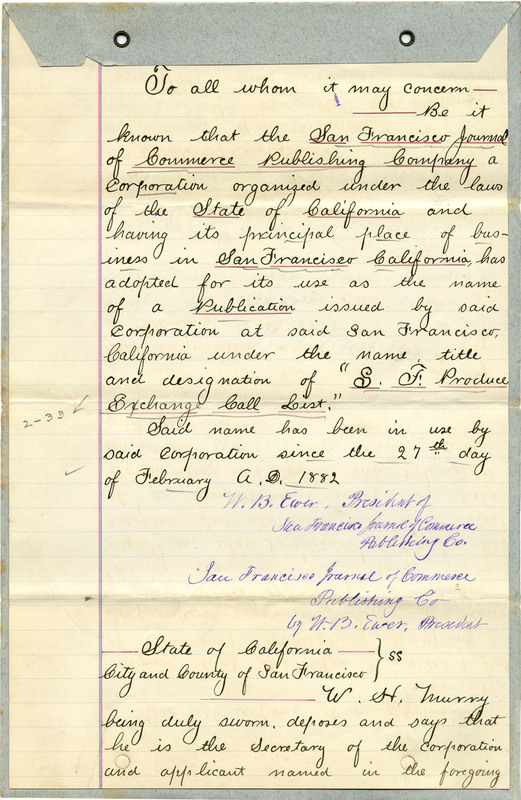 To all whom it may concern—
— Be it
known that the San Francisco Journal
of Commerce Publishing Company a
Corporation organized under the laws
of the State of California and
having its principal place of bus-
iness in San Francisco California, has
adopted for its use as the name
of a Publication issued by said
Corporation at said San Francisco,
California under the name, title
and designation of "S. F. Produce
Exchange Call List."
2-33 ✓
Said name has been in use by
said Corporation since the 27th day
of February A.D. 1882
W. B. Ewer, President of
San Francisco Journal of Commerce
Publishing Co.
San Francisco Journal of Commerce
Publishing Co
by W. B. Ewer, President
State of California
City and County of San Francisco } ss
W. H. Murry
being duly sworn, deposes and says that
he is the Secretary of the corporation
and applicant named in the foregoing